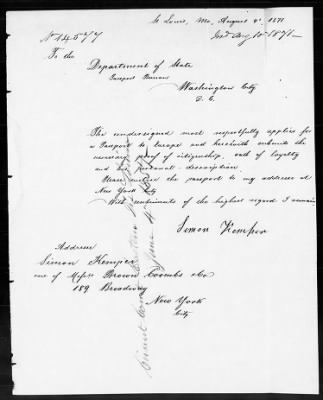 St Louis, Mo, August 4th, 1871
No 14577
Iss'd Aug 10 1871
To the
Department of State
Passport Bureau
Washington City
D. C.
The undersigned most respectfully applies for
a Passport to Europe and herewith submits the
necessary proof of citizenship, oath of loyalty
and his personal description.
Please direct the passport to my address at
New York City
With sentiments of the highest regard I remain
Simon Kemper
Address
Simon Kemper
care of Messrs Brown Coombs & Co
189 Broadway
New York
City